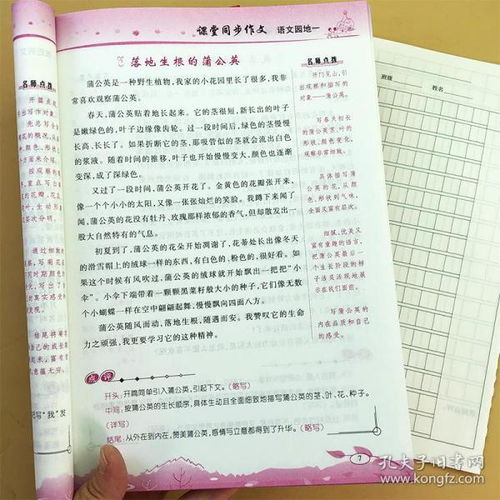 课堂同步作文 语文园地一
落地生根的蒲公英
蒲公英是一种野生植物,我家的小花园里长了很多,我非
常喜欢观察蒲公英。
春天,蒲公英贴着地长起来。它的茎很短,新长出的叶子
是嫩绿色的,叶子边缘像齿轮。过一段时间后,绿色的茎慢慢
长高、长长了。如果折断它的茎,那吸管似的茎就会流出白色
的浆液。随着时间的推移,叶子也开始慢慢变大,颜色也逐渐
变深,成了深绿色。
又过了一段时间,蒲公英开花了。金黄色的花瓣张开来,
像一个个小小的太阳,又像一张张灿烂的笑脸。我蹲下来闻了
闻,蒲公英的花没有牡丹、玫瑰那样浓郁的香气,但却散发出一
股大自然特有的气息。
初夏到了,蒲公英的花朵开始凋谢了,花蒂处长出像冬天
的滑雪帽上的绒球一样的东西,有白色的、粉色的,很好看。如
果这个时候有风吹过,蒲公英的绒球就开始飘出一把把“小
伞”。小伞下端带着一颗颗黑菜籽般大小的种子,它们像无数
个小蝴蝶一样在空中翩翩起舞,慢慢飘向四面八方。
蒲公英随风而动,落地生根,随遇而安。我赞叹它的生命
力之顽强,我更要学习它的这种精神。
名师点拨
开门见山,引
出观察和描写的
对象——蒲公英。
写春天初长
的蒲公英茎、叶的
形状、颜色变化,
观察非常细致。
具体描写蒲
公英的花,从颜
色、形状到气味,
全面又富有层次。
细腻、优美又
富有童趣的语言,
把蒲公英最后一
个生长阶段的样
子活灵活现地展
示在我们面前。
写蒲公英的
内在品质和自己
的感受。
点评
开头:开篇简单引入蒲公英,引起下文。(略写)
中间:按蒲公英的生长顺序,具体生动且全面细致地描写蒲公英的茎、叶、花、种子。
(详写)
结尾:从外在到内在,赞美蒲公英,感情与立意都得到了升华。(略写)
7
班级 姓名
名师点拨
孔夫子旧书网
www.kongfz.com